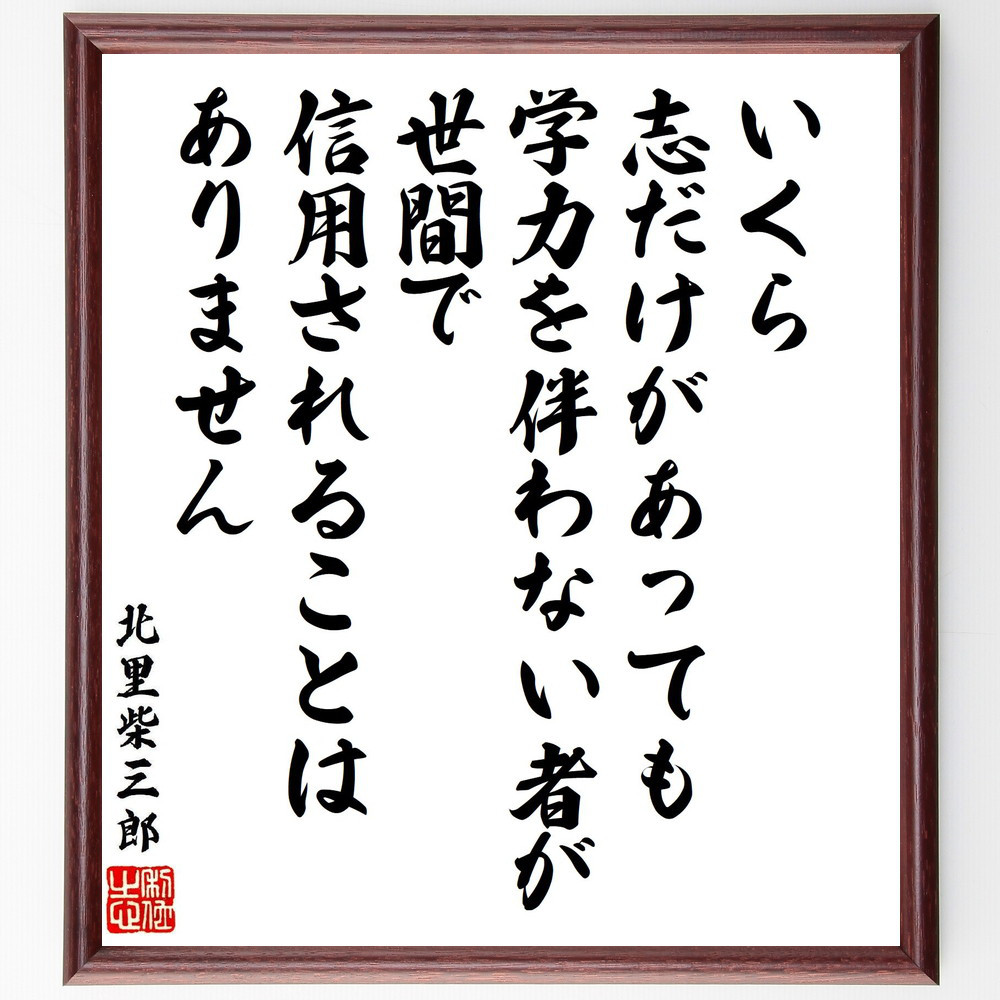 いくら
志だけがあっても
学力を伴わない者が
世間で
信用されることは
ありません
北里柴三郎